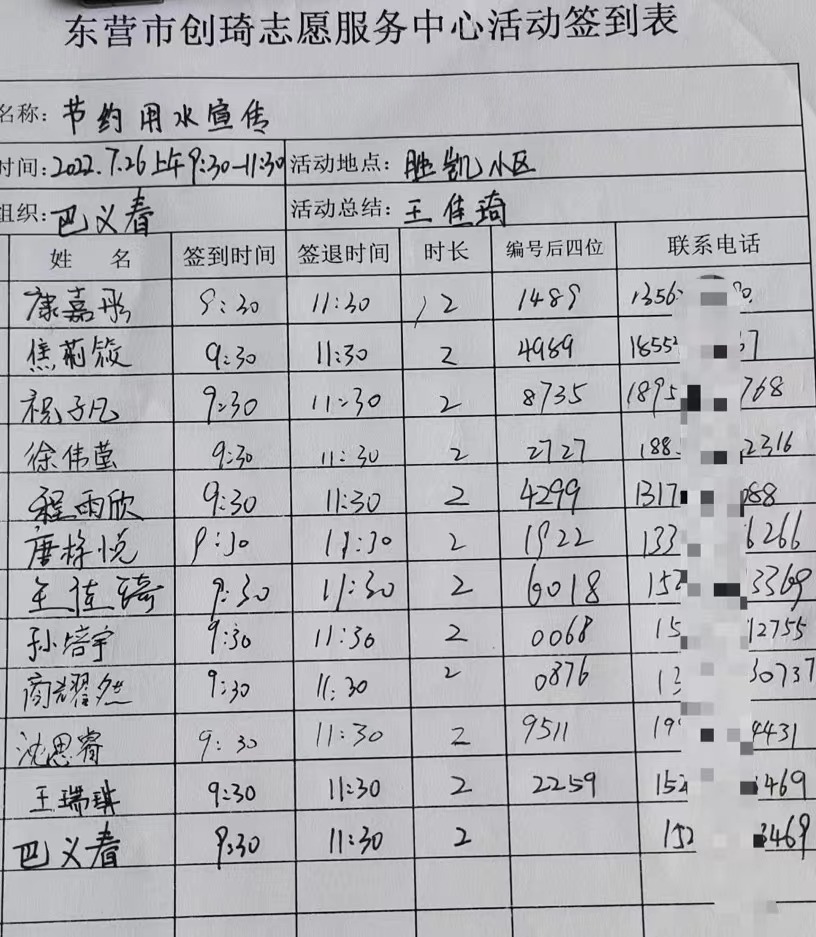 东营市创琦志愿服务中心活动签到表
名称: 节约用水宣传
时间: 2022.7.26上午9:30-11:30 活动地点: 胜凯小区
组织: 巴义春 活动总结: 王佳琦
姓 名 签到时间 签退时间 时长 编号后四位 联系电话
康嘉彤 9:30 11:30 2 1489 1356
焦荊筱 9:30 11:30 2 4989 1855 7
祝子凡 9:30 11:30 2 8735 1895 768
徐伟萤 9:30 11:30 2 2727 188 2316
程雨欣 9:30 11:30 2 4299 1317 088
唐梓悦 9:30 11:30 2 1922 133 6266
王佳琦 9:30 11:30 2 6018 152 3369
孙培宇 9:30 11:30 2 0068 15 12755
商耀然 9:30 11:30 2 0876 13 30737
沈思睿 9:30 11:30 2 9511 19 4431
王瑞琪 9:30 11:30 2 2259 152 469
巴义春 9:30 11:30 2 152 3469